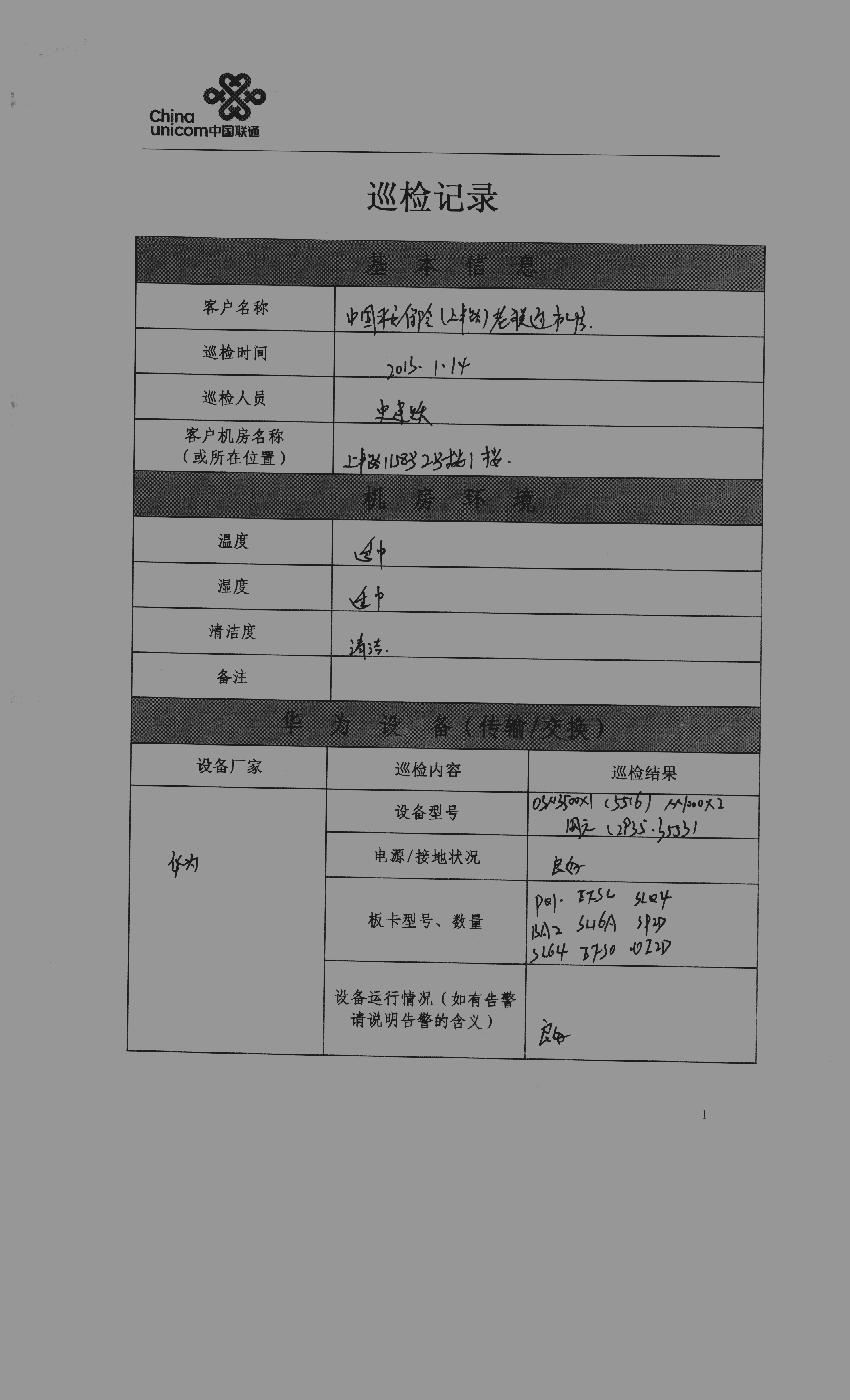 China
unicom中国联通
巡检记录
基 本 信 息
客户名称
中国 保险(上丰路)老联通机房.
巡检时间
2015. 1.14
巡检人员
史建跃
客户机房名称
(或所在位置)
上丰路1158号2号楼1楼.
机 房 环 境
温度
适中
湿度
适中
清洁度
清洁.
备注
华 为 设 备(传输/交换)
设备厂家 巡检内容 巡检结果
华为
设备型号
OSN3500X1 (3516) 1000X2
网元 (2935.3553)
电源/接地状况
良好
板卡型号、数量
PQ1. EFS0 SLQ4
BA2 SL16A SP2D
SL64 EFS0 DI2D
设备运行情况(如有告警
请说明告警的含义)
良好
1